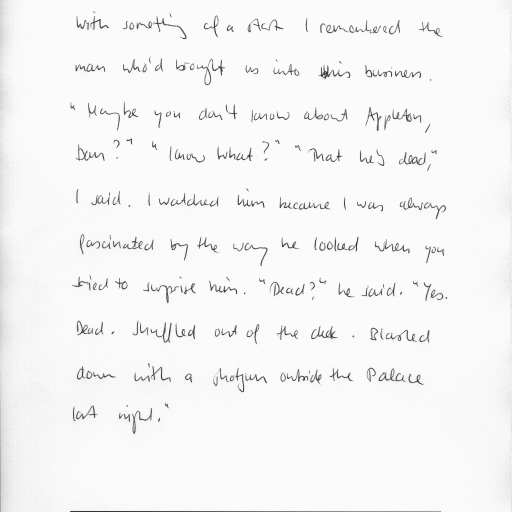 With something of a start I remembered the
man who'd brought us into this business.
"Maybe you don't know about Appleton,
Dan?" "Know what?" "That he's dead,"
I said. I watched him because I was always
fascinated by the way he looked when you
tried to surprise him. "Dead?" he said. "Yes.
Dead. Shuffled out of the deck. Blasted
down with a shotgun outside the Palace
last night."